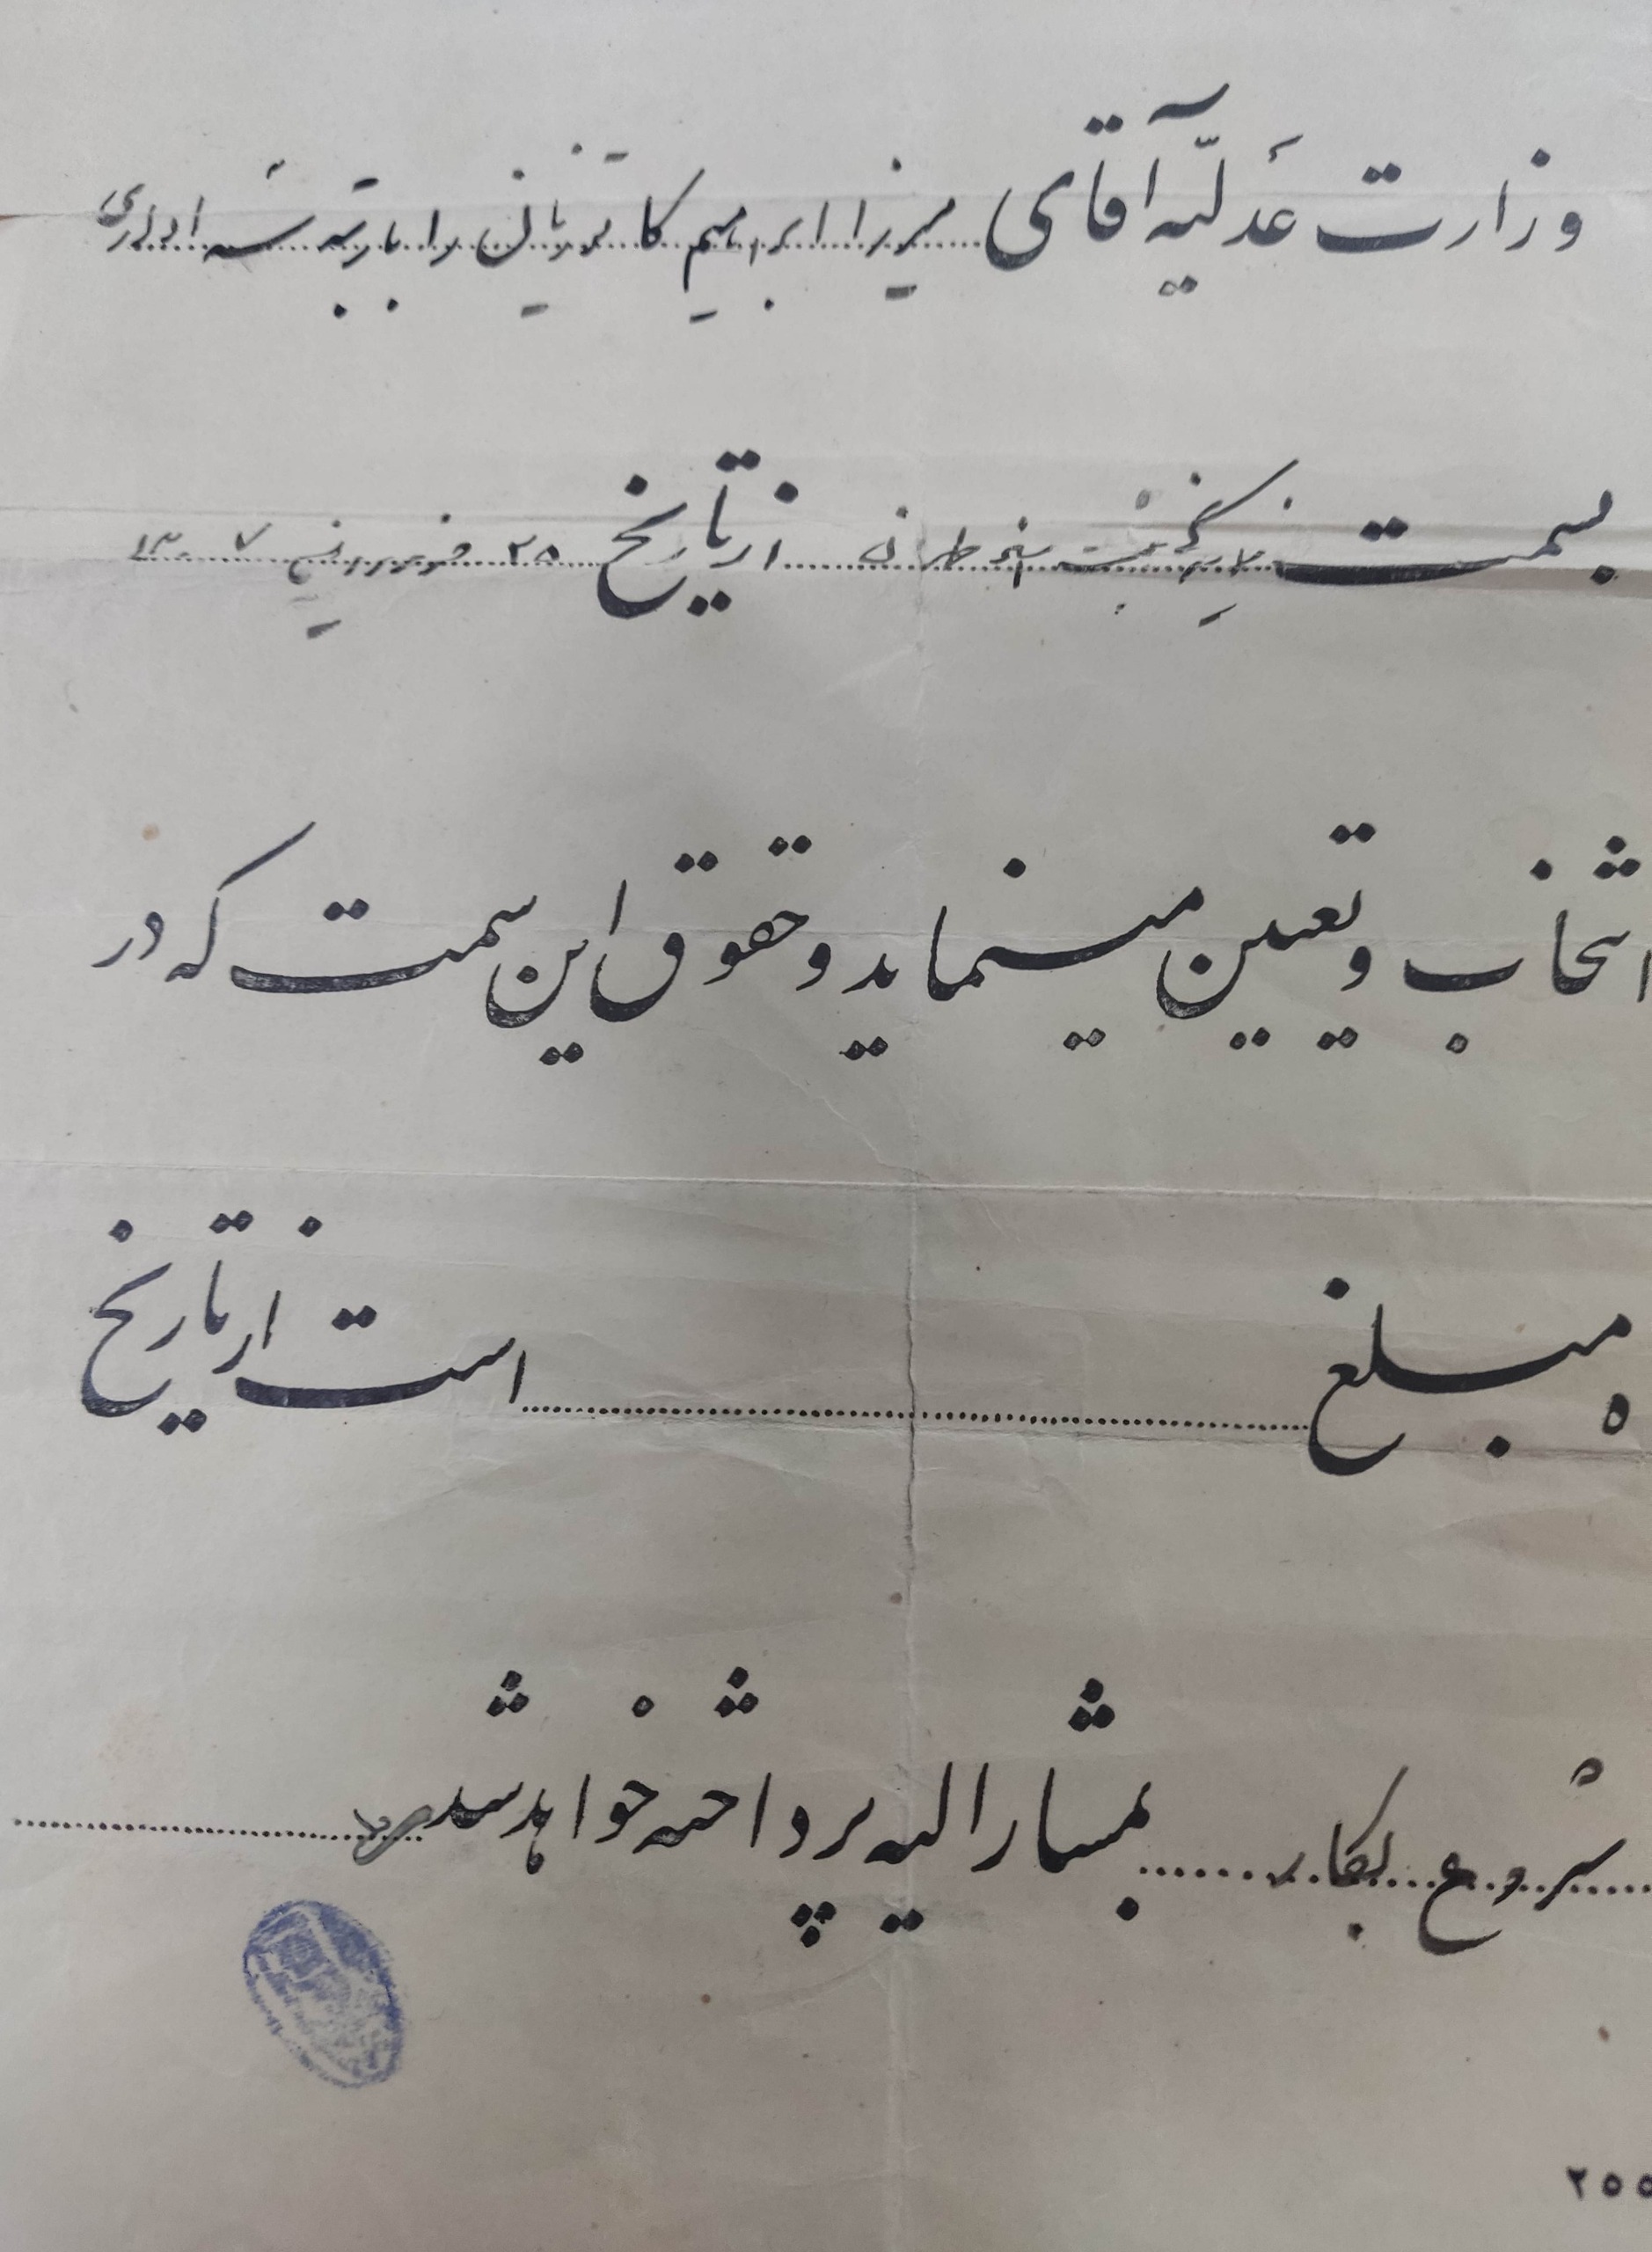 وزارت عدلیّه آقای میرزا ابراهیم را با رتبه سه اداری
بسمت طهران از تاریخ ۲۵ فروردین ۱۳۰۷
انتخاب و تعیین مینماید و حقوق این سمت که در
ه مبلغ است از تاریخ
شروع بکار بمشارالیه پرداخته خواهد شد
۲۵۵